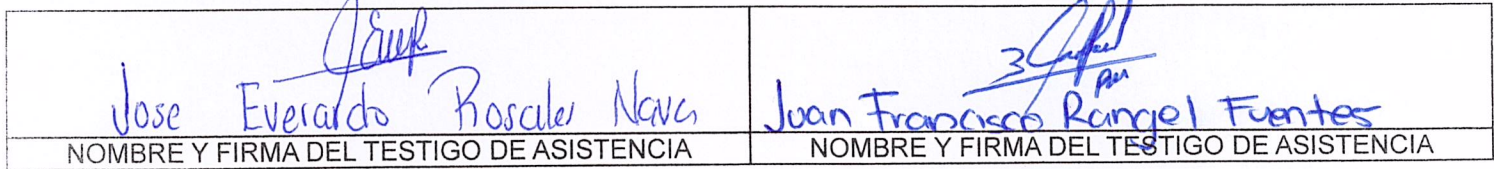 Jose Everardo Rosales Nava
Juan Francisco Rangel Fuentes
NOMBRE Y FIRMA DEL TESTIGO DE ASISTENCIA
NOMBRE Y FIRMA DEL TESTIGO DE ASISTENCIA